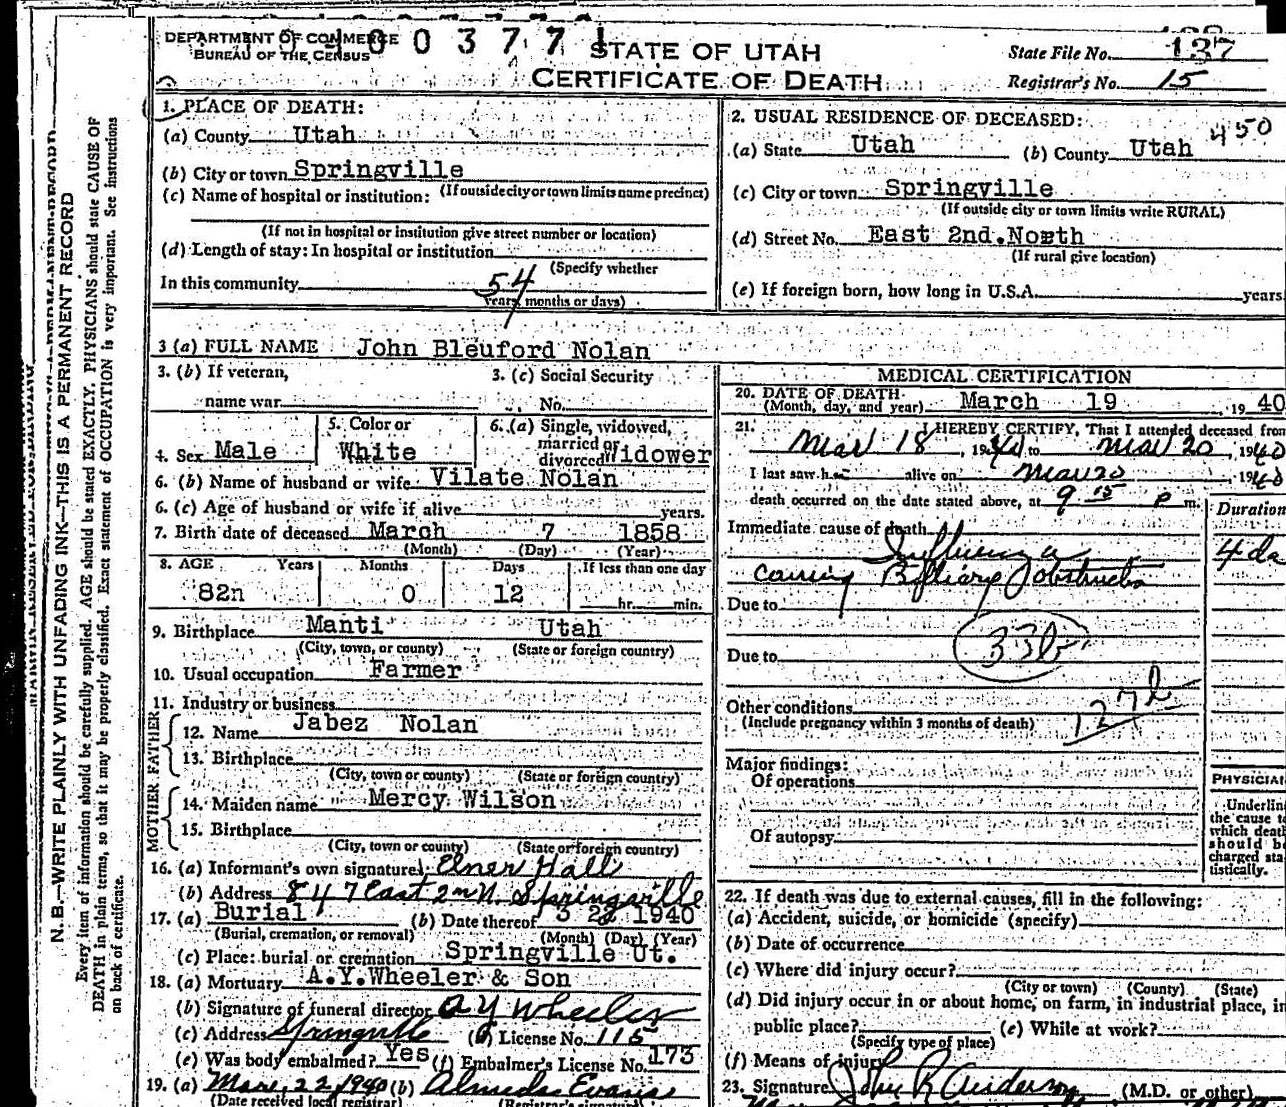 DEPARTMENT OF COMMERCE
BUREAU OF THE CENSUS
0 0 3 7 7
STATE OF UTAH
CERTIFICATE OF DEATH
State File No. 137
Registrar's No. 15
1. PLACE OF DEATH:
(a) County Utah
(b) City or town Springville
(If outside city or town limits name precinct)
(c) Name of hospital or institution:
(If not in hospital or institution give street number or location)
(d) Length of stay: In hospital or institution
(Specify whether
In this community 54
years, months or days)
2. USUAL RESIDENCE OF DECEASED:
450
(a) State Utah (b) County Utah
(c) City or town Springville
(If outside city or town limits write RURAL)
(d) Street No. East 2nd. North
(If rural give location)
(e) If foreign born, how long in U.S.A. years
3 (a) FULL NAME John Bleuford Nolan
3. (b) If veteran,
name war
3. (c) Social Security
No.
4. Sex Male
5. Color or
White
6. (a) Single, widowed,
married or
divorced Widower
6. (b) Name of husband or wife Vilate Nolan
6. (c) Age of husband or wife if alive years.
7. Birth date of deceased March 7 1858
(Month) (Day) (Year)
8. AGE Years Months Days If less than one day
82n 0 12 hr. min.
9. Birthplace Manti Utah
(City, town, or county) (State or foreign country)
10. Usual occupation Farmer
11. Industry or business
FATHER
12. Name Jabez Nolan
13. Birthplace
(City, town or county) (State or foreign country)
MOTHER
14. Maiden name Mercy Wilson
15. Birthplace
(City, town or county) (State or foreign country)
16. (a) Informant's own signature Elner Hall
(b) Address 847 East 2nd N. Springville
17. (a) Burial (b) Date thereof 3 1940
(Burial, cremation, or removal) (Month) (Day) (Year)
(c) Place: burial or cremation Springville Ut.
18. (a) Mortuary A.Y.Wheeler & Son
(b) Signature of funeral director A Y Wheeler
(c) Address Springville (d) License No. 115
(e) Was body embalmed? Yes (f) Embalmer's License No. 173
19. (a) Mar. 22, 1940 (b) Almeda Evans
(Date received local registrar) (Registrar's signature)
MEDICAL CERTIFICATION
20. DATE OF DEATH
(Month, day, and year) March 19, 1940
21. I HEREBY CERTIFY, That I attended deceased from
Mar 18, 1940 to Mar 20, 1940
I last saw h alive on Mar 20 1940
death occurred on the date stated above, at 9 15 P m.
Duration
Immediate cause of death
Influenza 4 da
causing Biliary obstruction
Due to
33b
Due to
127b
Other conditions
(Include pregnancy within 3 months of death)
Major findings:
Of operations
Of autopsy
PHYSICIAN
Underline
the cause to
which death
should be
charged sta-
tistically.
22. If death was due to external causes, fill in the following:
(a) Accident, suicide, or homicide (specify)
(b) Date of occurrence
(c) Where did injury occur?
(City or town) (County) (State)
(d) Did injury occur in or about home, on farm, in industrial place, in
public place? (e) While at work?
(Specify type of place)
(f) Means of injury
23. Signature John R Anderson (M.D. or other)
N. B.—WRITE PLAINLY WITH UNFADING INK—THIS IS A PERMANENT RECORD
Every item of information should be carefully supplied. AGE should be stated EXACTLY. PHYSICIANS should state CAUSE OF
DEATH in plain terms, so that it may be properly classified. Exact statement of OCCUPATION is very important. See instructions
on back of certificate.